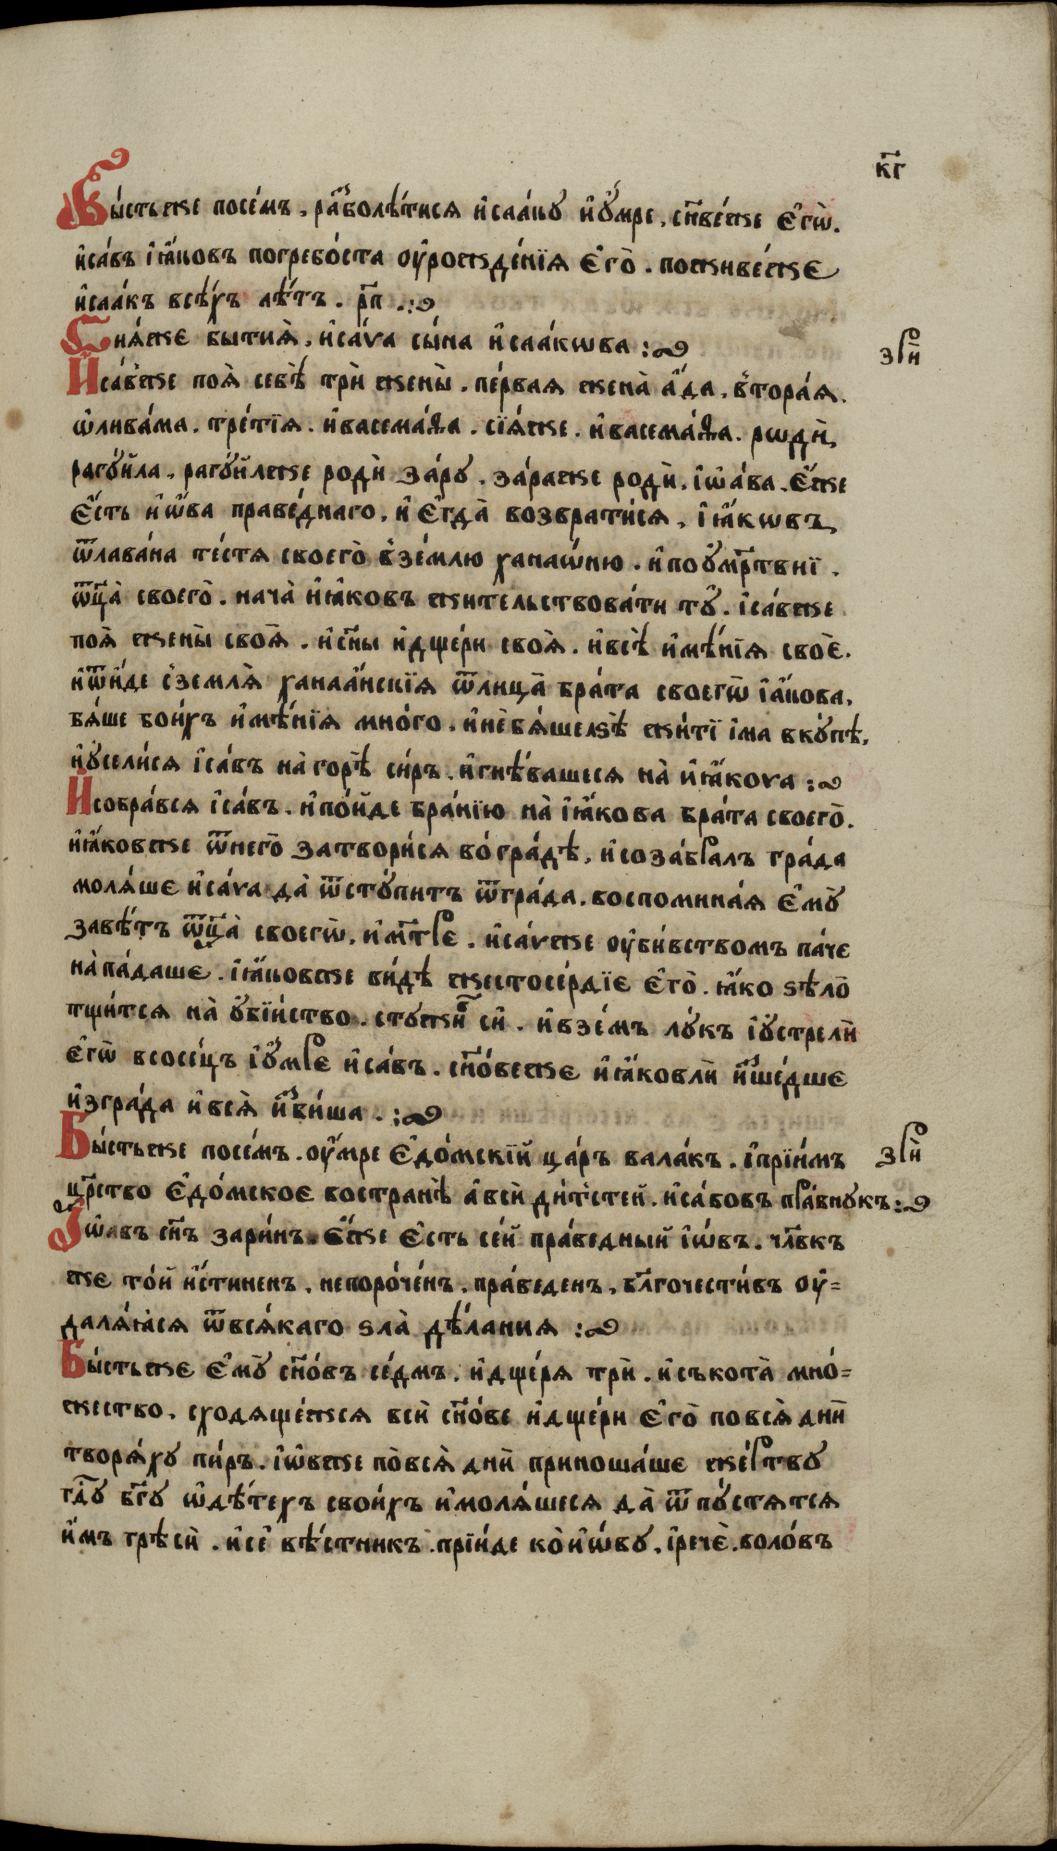 к҃г
Бы́стьже посе́мъ, ра́зболѣ́тися и҆саа́ку и҆ ѹ҆́мре, сн҃ве́же є҆гѡ̀.
и҆са́въ і҆ꙗ́ковъ погребо́ста ѹ҆рожде́нїѧ є҆го̀. поживе́же
и҆саа́къ всѣ́хъ лѣ́тъ. рп҃.
Сиѧ́же бытиѧ̀, и҆са́ѵа сы́на и҆саа́кѡва:
зрѝ
И҆са́вже поѧ̀ себѣ̀ трѝ жены̀. пе́рваѧ жена̀ а҆́да, в҆тора́ѧ.
ѡ҆лива́ма. тре́тїѧ. и҆васема́ѳа. сїѧ́же. и҆васема́ѳа. рѡдѝ,
рагꙋи́ла, рагꙋи́лже родѝ за́рꙋ. за́раже родѝ, і҆ѡа́ва. є҆́же
є҆́сть и҆ѡ҆́ва праве́днаго, и҆ є҆гда̀ возврати́сѧ, і҆ꙗ́кѡвъ,
ѿлава́на те́стѧ своего̀ в҆зе́млю ханаѡ́ню. и҆поꙋ҆мр҃твиї.
ѿц҃а̀ своего̀. нача̀ и҆ꙗ́ковъ жительствова́ти тꙋ̀. і҆са́вже
поѧ̀ жены̀ своѧ̀. и҆сн҃ы и҆дщери своѧ̀. и҆всѣ̀ и҆мѣ́нїѧ своѐ.
и҆ѿи́де с҆землѧ̀ ханаа́нскїѧ ѿлица̀ бра́та своегѡ̀ і҆а́кова,
бѧ́ше бои́хъ и҆мѣ́нїѧ мно́го. и҆нѐбѧ́шелзѣ̀ жи́тї і҆ма вкꙋ́пѣ,
и҆ꙋсели́сѧ і҆са́въ на̀горѣ̀ си́ръ. и҆гнѣ́вашесѧ на̀ и҆ꙗ́коѵа:
И҆собра́всѧ і҆са́въ. и҆по́йде бра́нїю на̀ і҆ꙗ́кова бра́та своего̀.
и҆ꙗ́ковже ѿнего̀ затвори́сѧ во́гра́дѣ, и҆созабралъ гра́да
молѧ́ше и҆са́ѵа да̀ ѿстꙋ́питъ ѿгра́да. воспомина́ѧ є҆мꙋ̀
завѣ́тъ ѿц҃а̀ своегѡ̀, и҆мт҃ре. и҆са́ѵже ѹ҆би́вствомъ па́че
на̀па́даше. і҆ꙗ́ковже ви́дѣ жестосе́рдїе є҆го̀. ꙗ҆́ко ѕѣло̀
тщи́тсѧ на̀ ꙋ҆бїи́ство. стꙋ́жи́ си́. и҆взе́мъ лꙋ́къ і҆ꙋ҆стрелѝ
є҆гѡ̀ всосе́цъ і҆ꙋ҆мре и҆са́въ. сн҃о́веже и҆ꙗ́ковлѝ и҆зше́дше
и҆згра́да и҆всѧ̀ и҆зби́ша.
Бы́стьже посе́мъ. ѹ҆́мре є҆до́мскїй ца́ръ вала́къ. і҆прїи́мъ
зрѝ
цр҃ство є҆до́мское востранѣ̀ а҆всѝ ди́тстей. и҆са́вовъ пра́внꙋкъ:
І҆ѡ́авъ сн҃ъ зари́нъ. є҆́же є҆́сть се́й пра́ведный і҆ѡ́въ. чл҃вкъ
же то́й и҆́стиненъ, непоро́че́нъ, пра́веденъ, бл҃гочести́въ ѹ҆=
далѧ́ѧсѧ ѿвсѧ́каго ѕла̀ дѣ́ланиѧ:
Бы́стьже є҆мꙋ̀ сн҃о́въ се́дмъ. и҆дще́рѧ трѝ. и҆съкота̀ мно́=
жество. сходѧще́жсѧ всѝ сн҃о́ве и҆дще́ри є҆го̀ повсѧ̀ дн҃и
творѧ́хꙋ пи́ръ. і҆ѡ́вже по̀всѧ̀ днѝ приноша́ше же́ртвꙋ
гд҃ꙋ бг҃ꙋ ѡ҆дѣ́техъ свои́хъ и҆молѧ́шесѧ да̀ ѿпꙋ́стѧтсѧ
и҆́мъ грѣсѝ. и҆се́ вѣ́стникъ прїи́де ко̀и҆ѡ́вꙋ. і҆речѐ. воло́въ